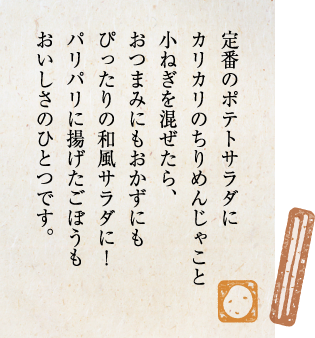 定番のポテトサラダに
カリカリのちりめんじゃこと
小ねぎを混ぜたら、
おつまみにもおかずにも
ぴったりの和風サラダに！
パリパリに揚げたごぼうも
おいしさのひとつです。